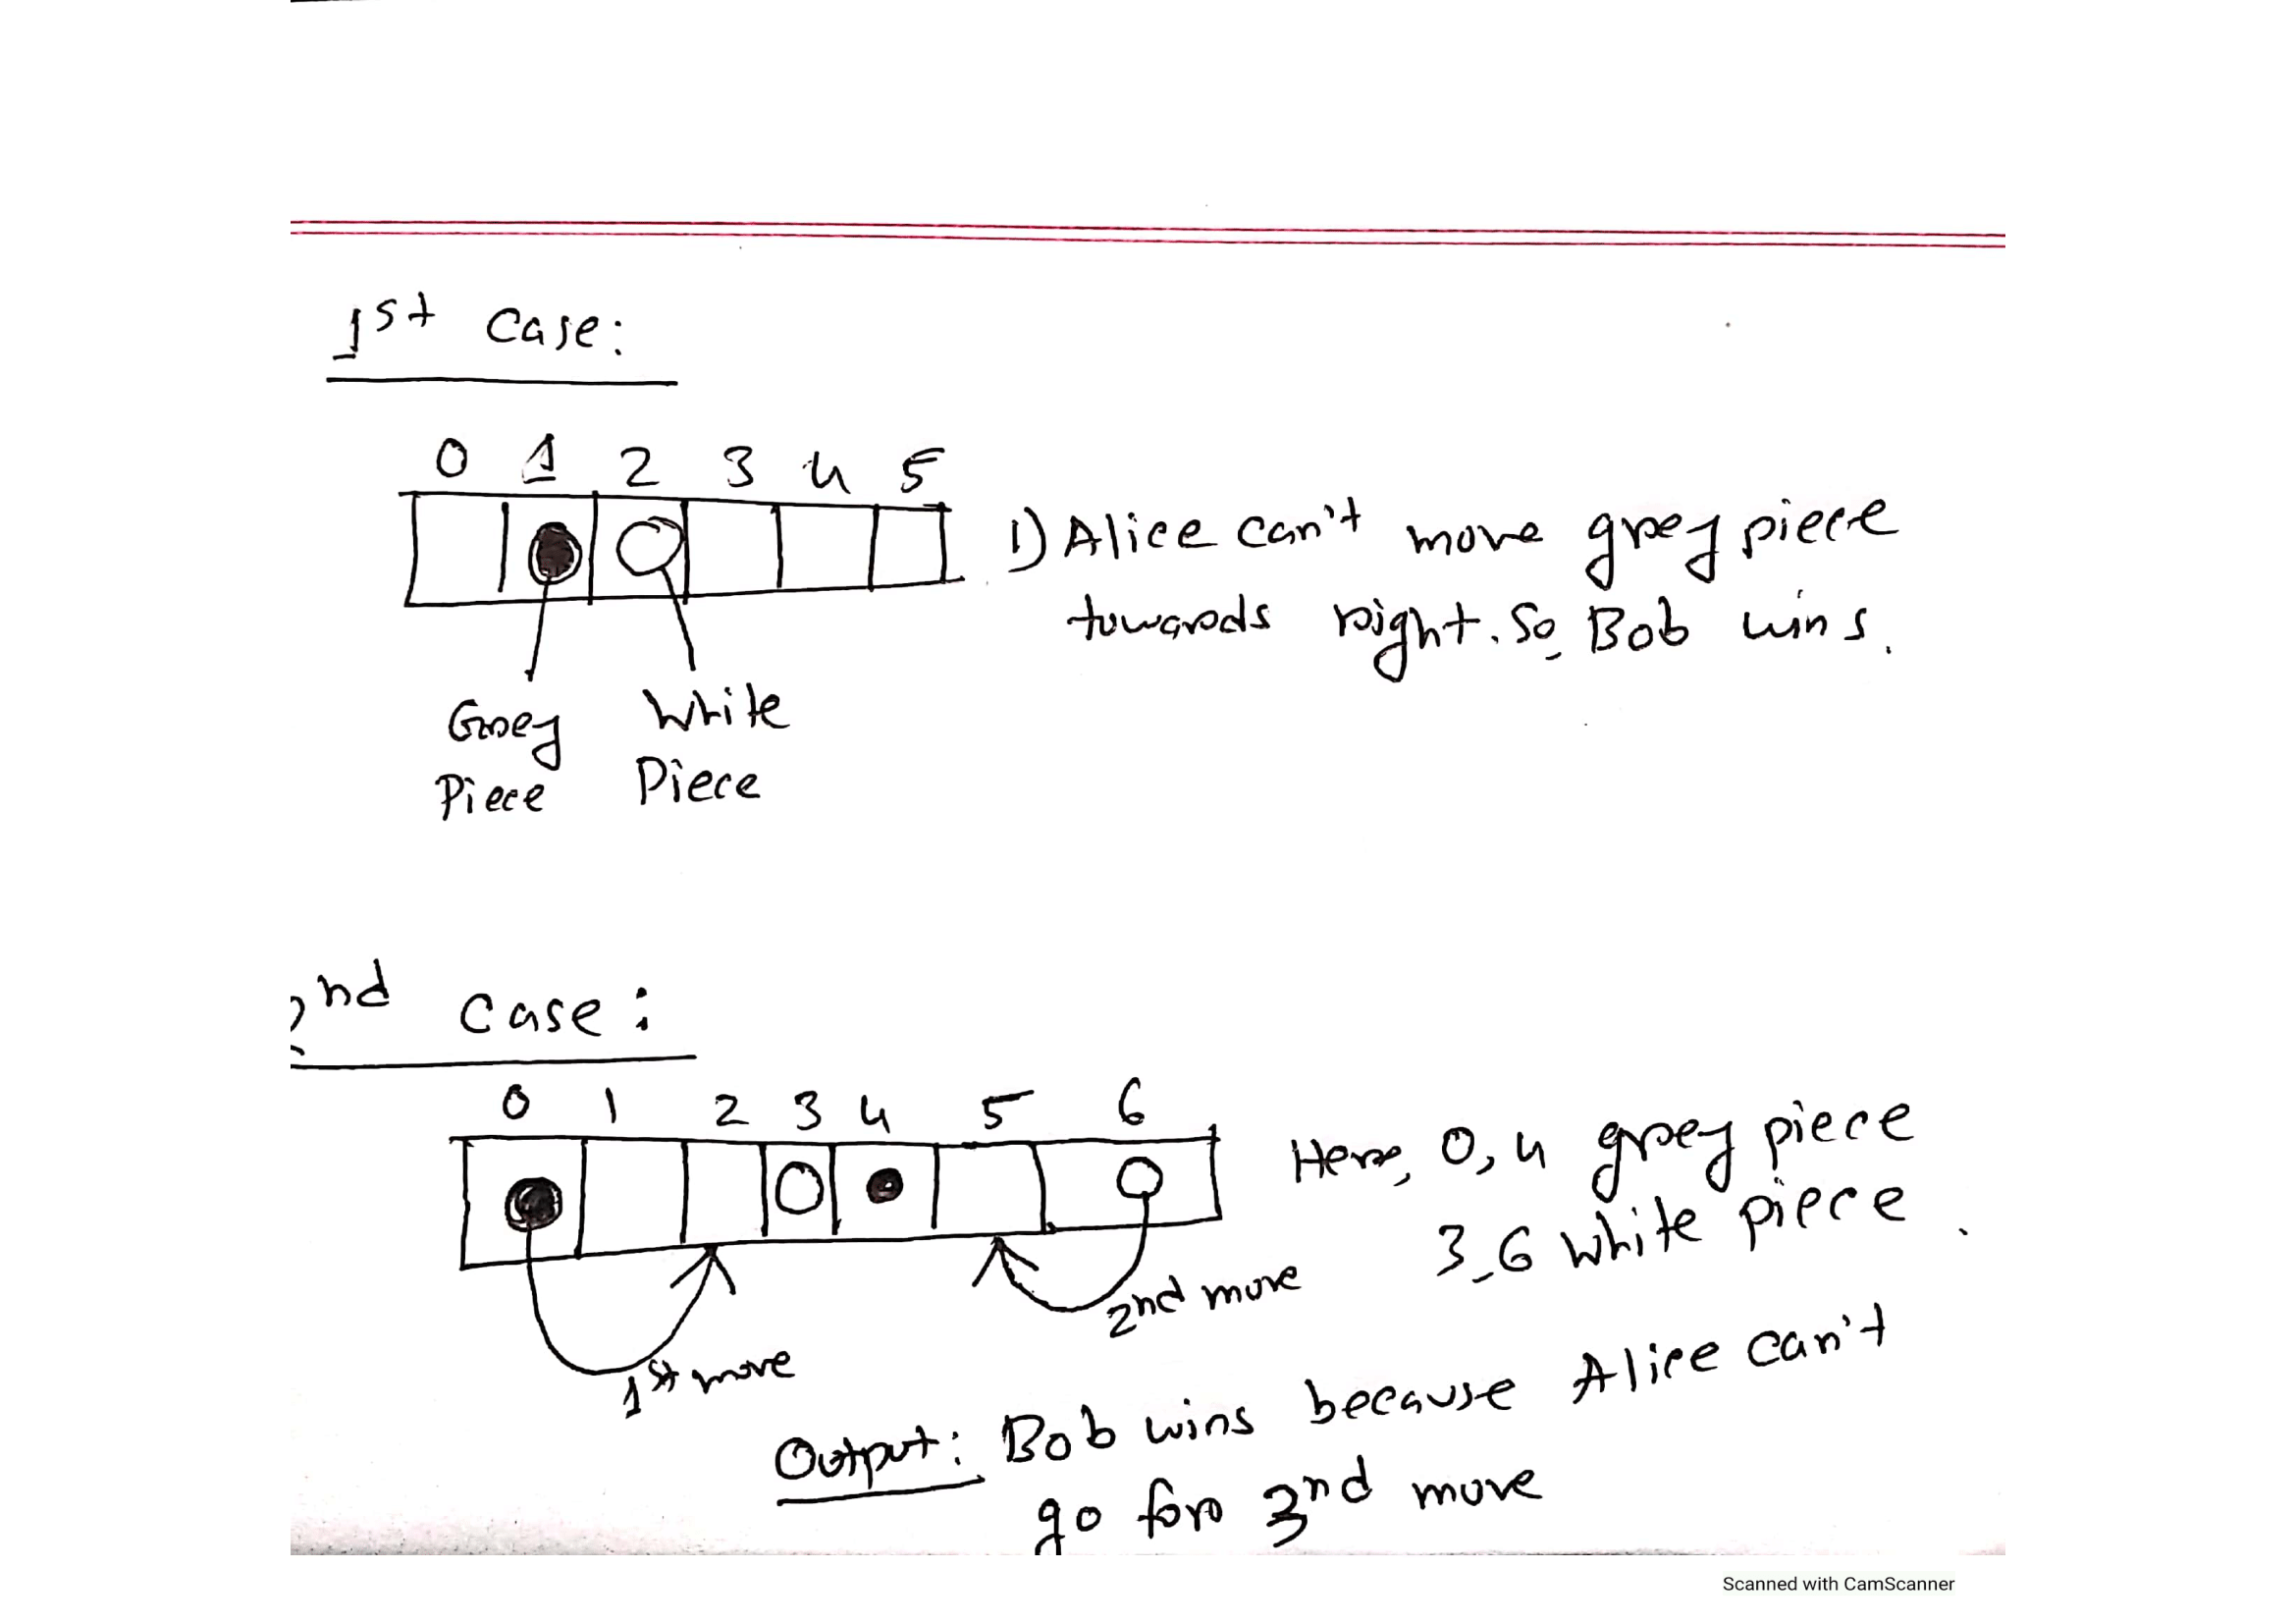 1st Case:
0 1 2 3 4 5
1) Alice can't move grey piece
towards right. So, Bob wins.
Grey White
Piece Piece
2nd Case:
0 1 2 3 4 5 6
Here, 0, 4 grey piece
3, 6 white piece.
2nd move
1st move
Output: Bob wins because Alice can't
go for 3nd move
Scanned with CamScanner